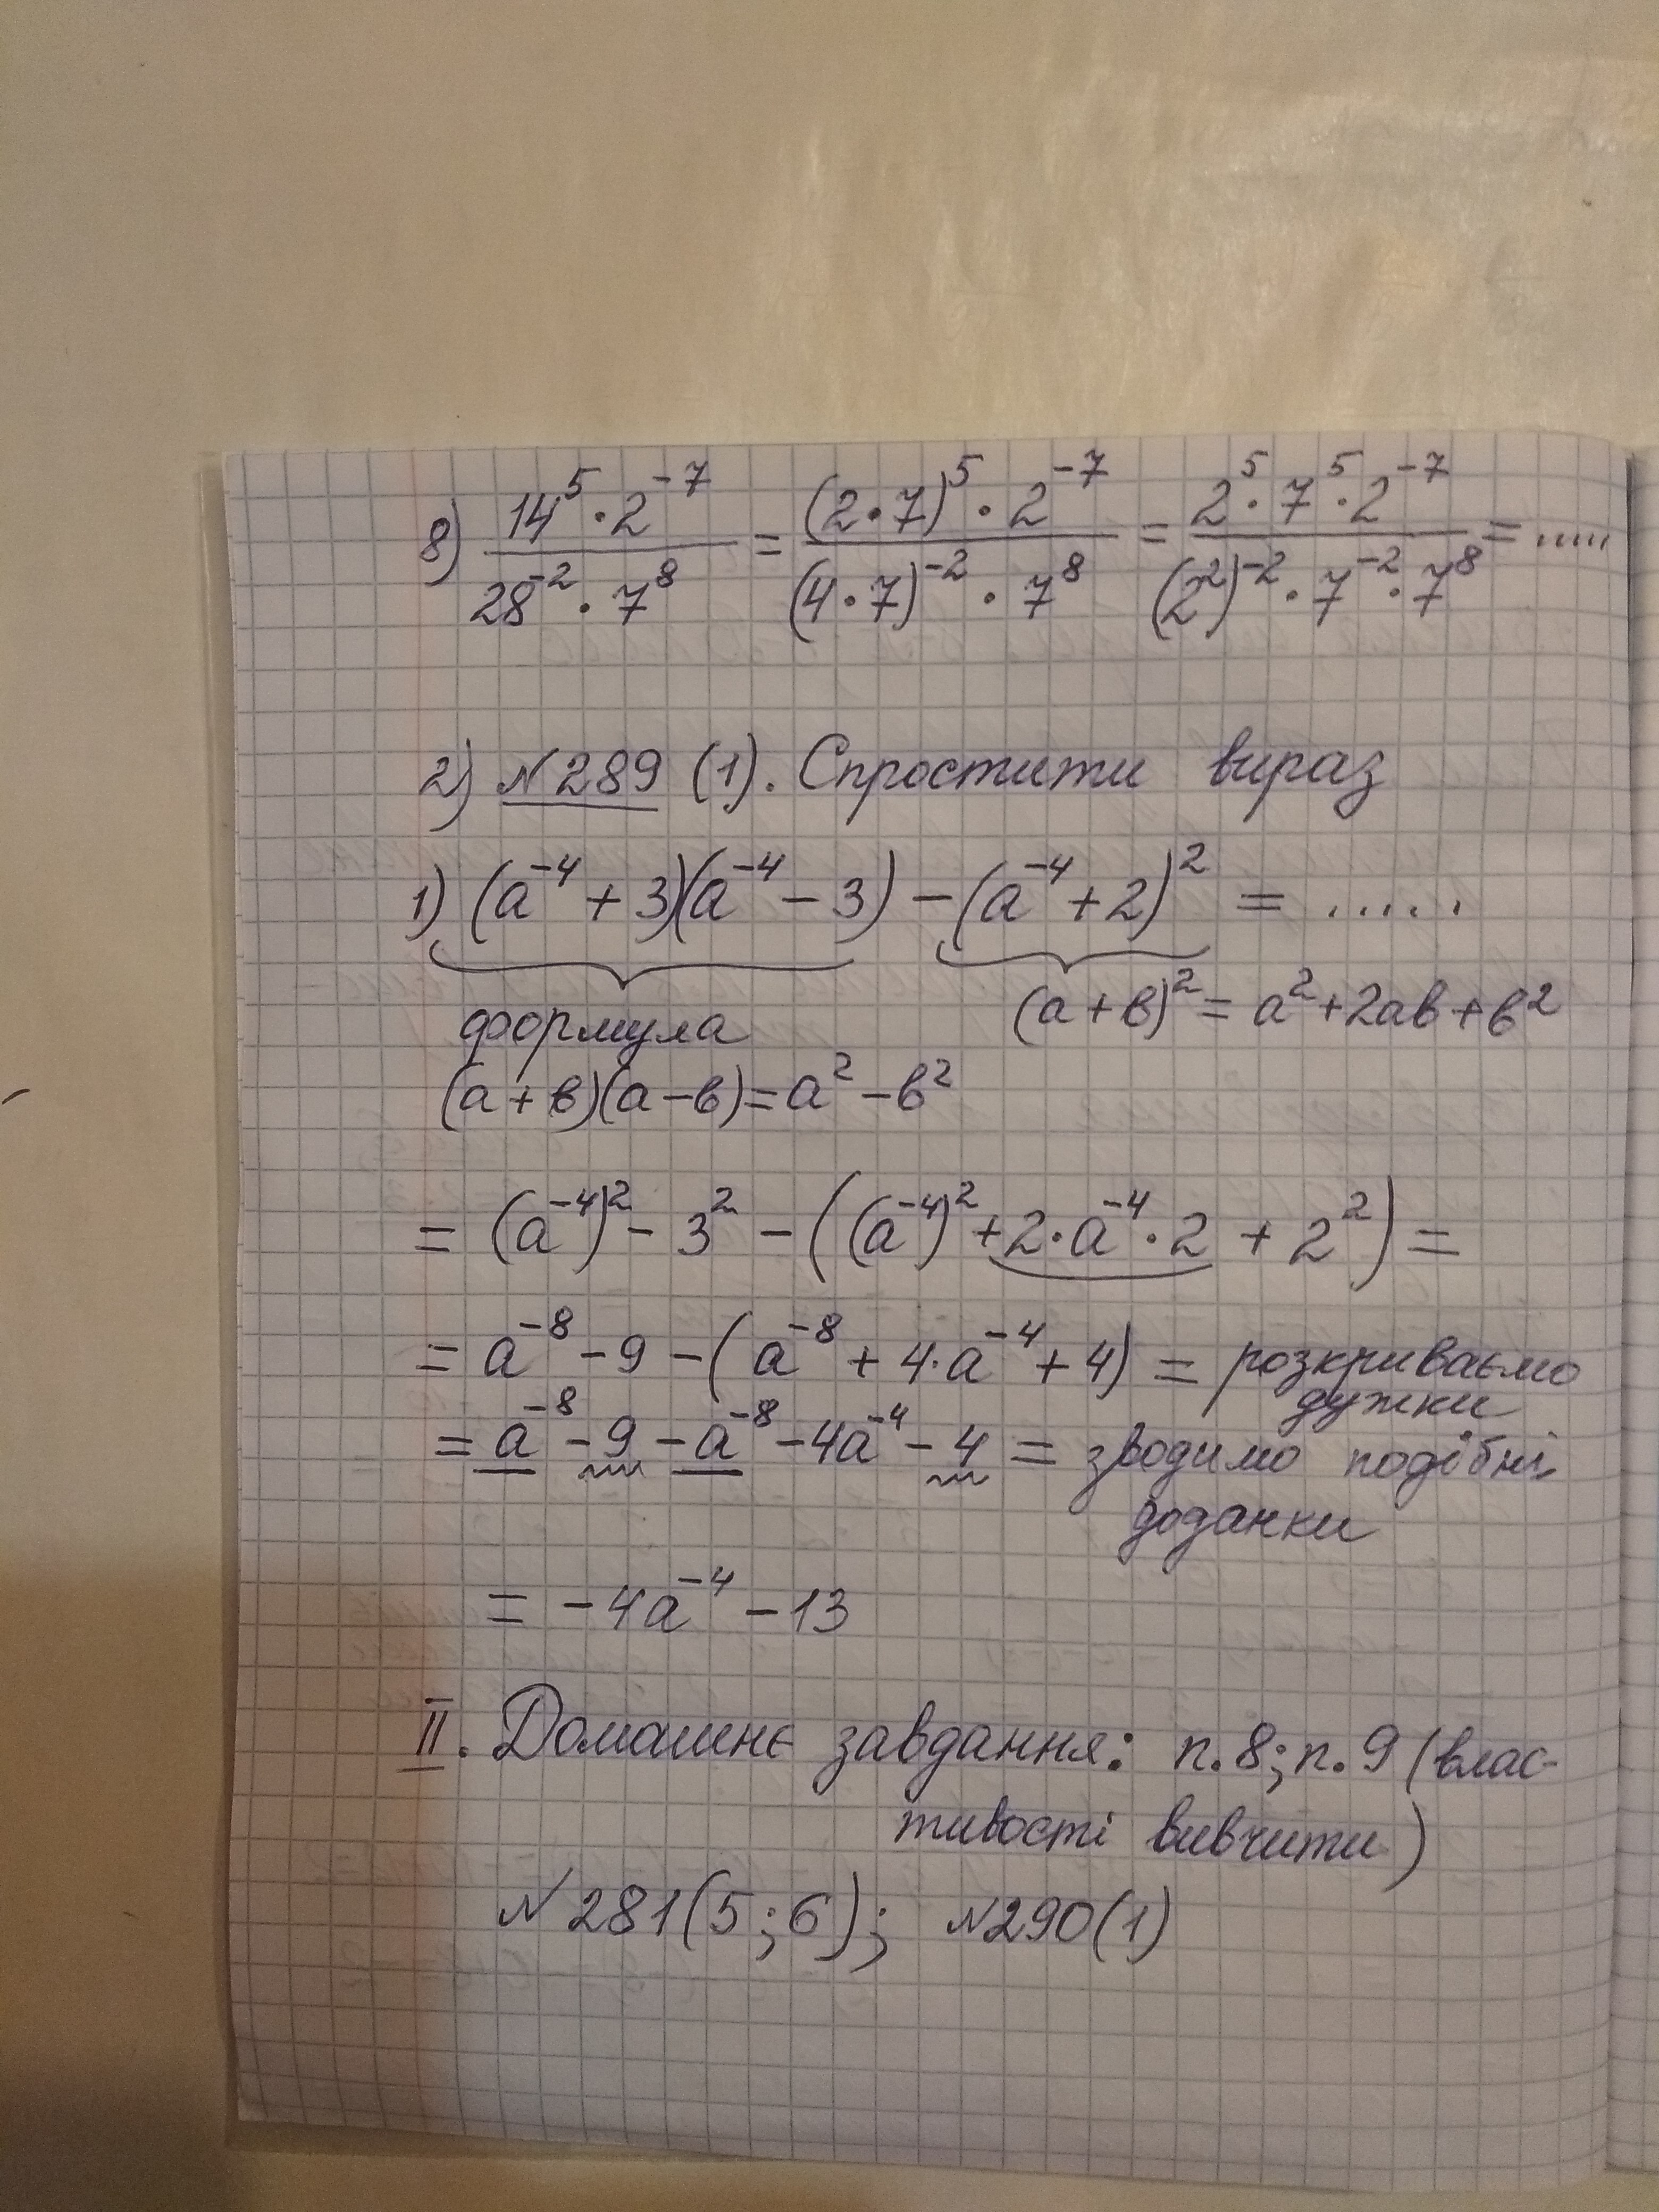 8) 14⁵·2⁻⁷ / 28⁻²·7⁸ = (2·7)⁵·2⁻⁷ / (4·7)⁻²·7⁸ = 2⁵·7⁵·2⁻⁷ / (2²)⁻²·7⁻²·7⁸ = .....
2) №289 (1). Спростити вираз
1) (a⁻⁴ + 3)(a⁻⁴ − 3) − (a⁻⁴ + 2)² = .....
формула
(a + в)² = a² + 2aв + в²
(a + в)(a − в) = a² − в²
= (a⁻⁴)² − 3² − ((a⁻⁴)² + 2·a⁻⁴·2 + 2²) =
= a⁻⁸ − 9 − (a⁻⁸ + 4·a⁻⁴ + 4) = розкриваємо
дужки
= a⁻⁸ − 9 − a⁻⁸ − 4a⁻⁴ − 4 = зводимо подібні
доданки
= −4a⁻⁴ − 13
II. Домашнє завдання: п.8; п.9 (влас-
тивості вивчити)
№281(5;6); №290(1)